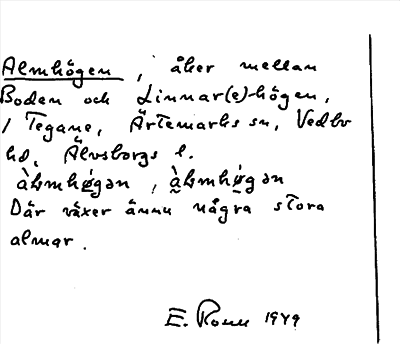 Almhögen, åker mellan
Boden och Linnar(e)-högen,
i Tegane, Ärtemarks sn, Vedbo
hd, Älvsborgs l.
àlmhǿ̱gən, à̱lmhǿ̱gən
Där växer ännu några stora
almar.
E. Ronn 1949